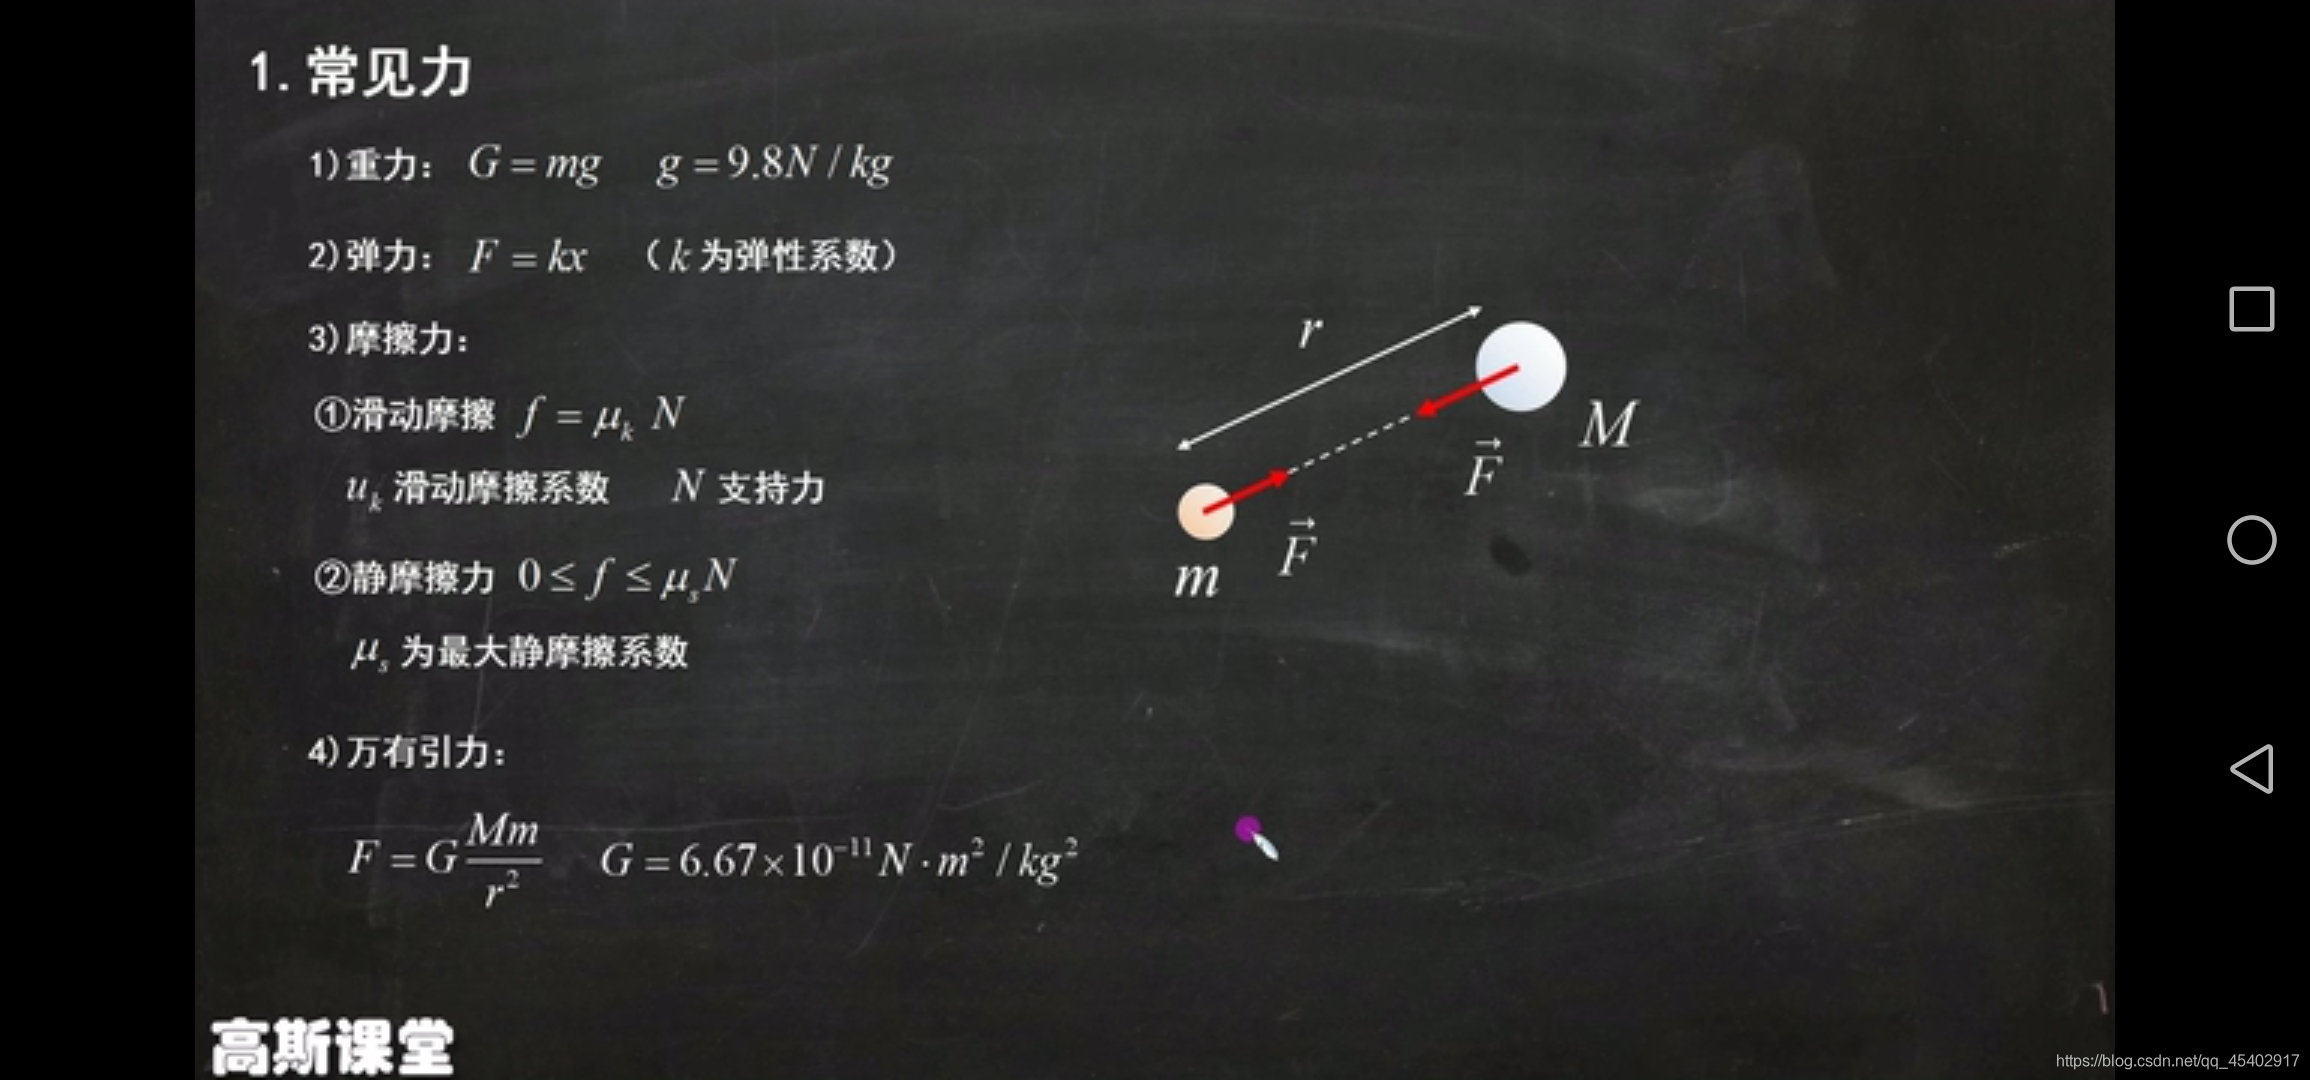 1.常见力
1)重力： G = mg g = 9.8N / kg
2)弹力： F = kx （k 为弹性系数）
3)摩擦力：
①滑动摩擦 f = μk N
uk 滑动摩擦系数 N 支持力
②静摩擦力 0 ≤ f ≤ μsN
μs 为最大静摩擦系数
4)万有引力：
F = G Mm / r² G = 6.67×10⁻¹¹ N · m² / kg²
r
M
F⃗
F⃗
m
高斯课堂
https://blog.csdn.net/qq_45402917